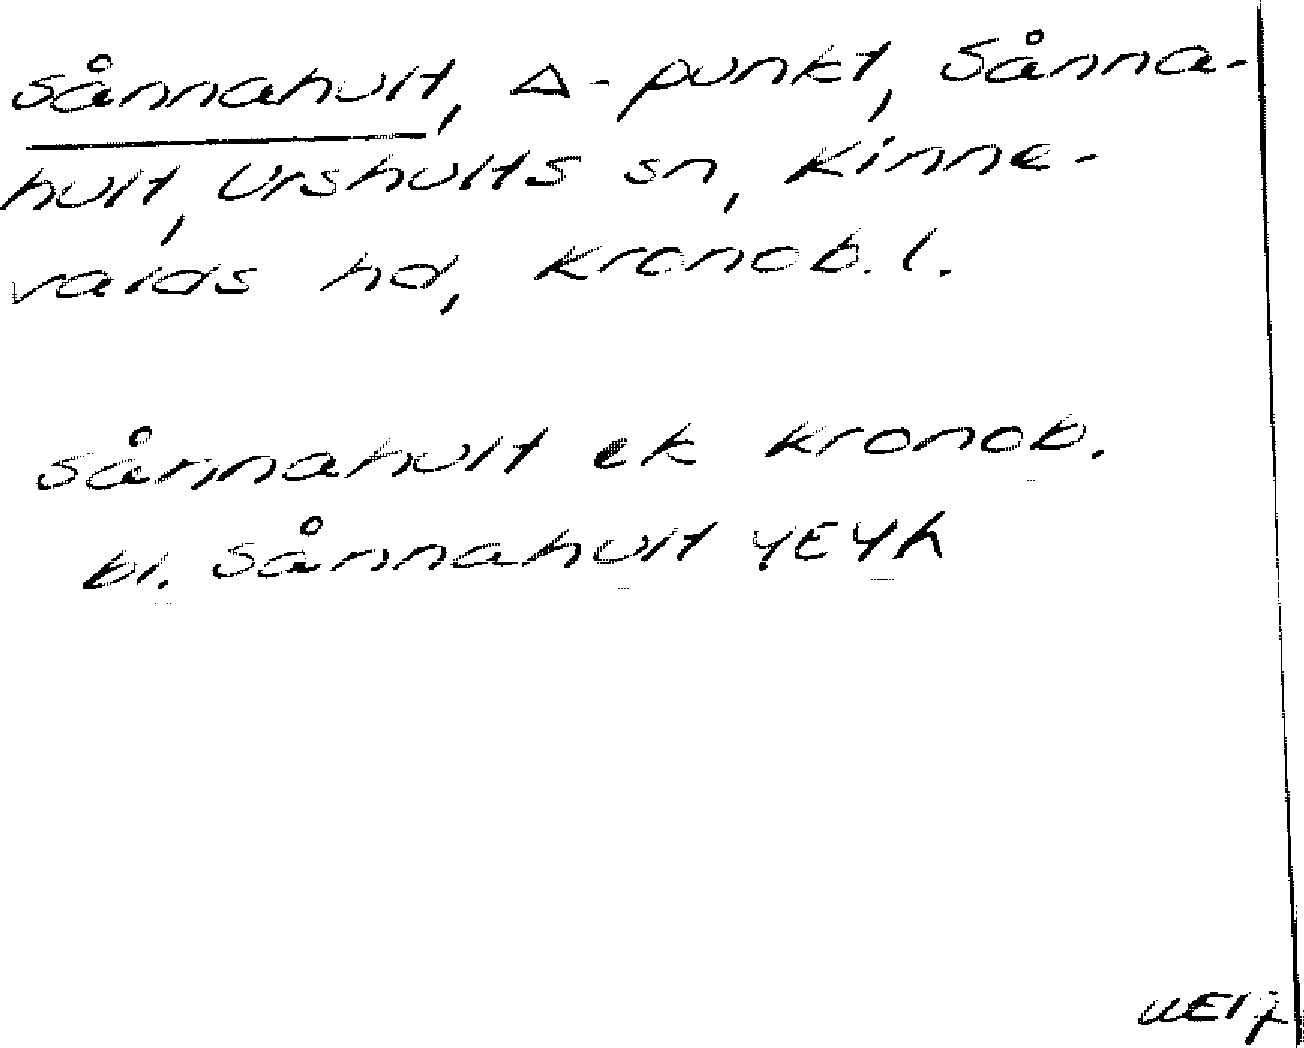 Sånnahult, Δ-punkt, Sånna-
hult, Urshults sn, Kinne-
valds hd, Kronob. l.
Sånnahult ek Kronob.
bl. Sånnahult 4E4h